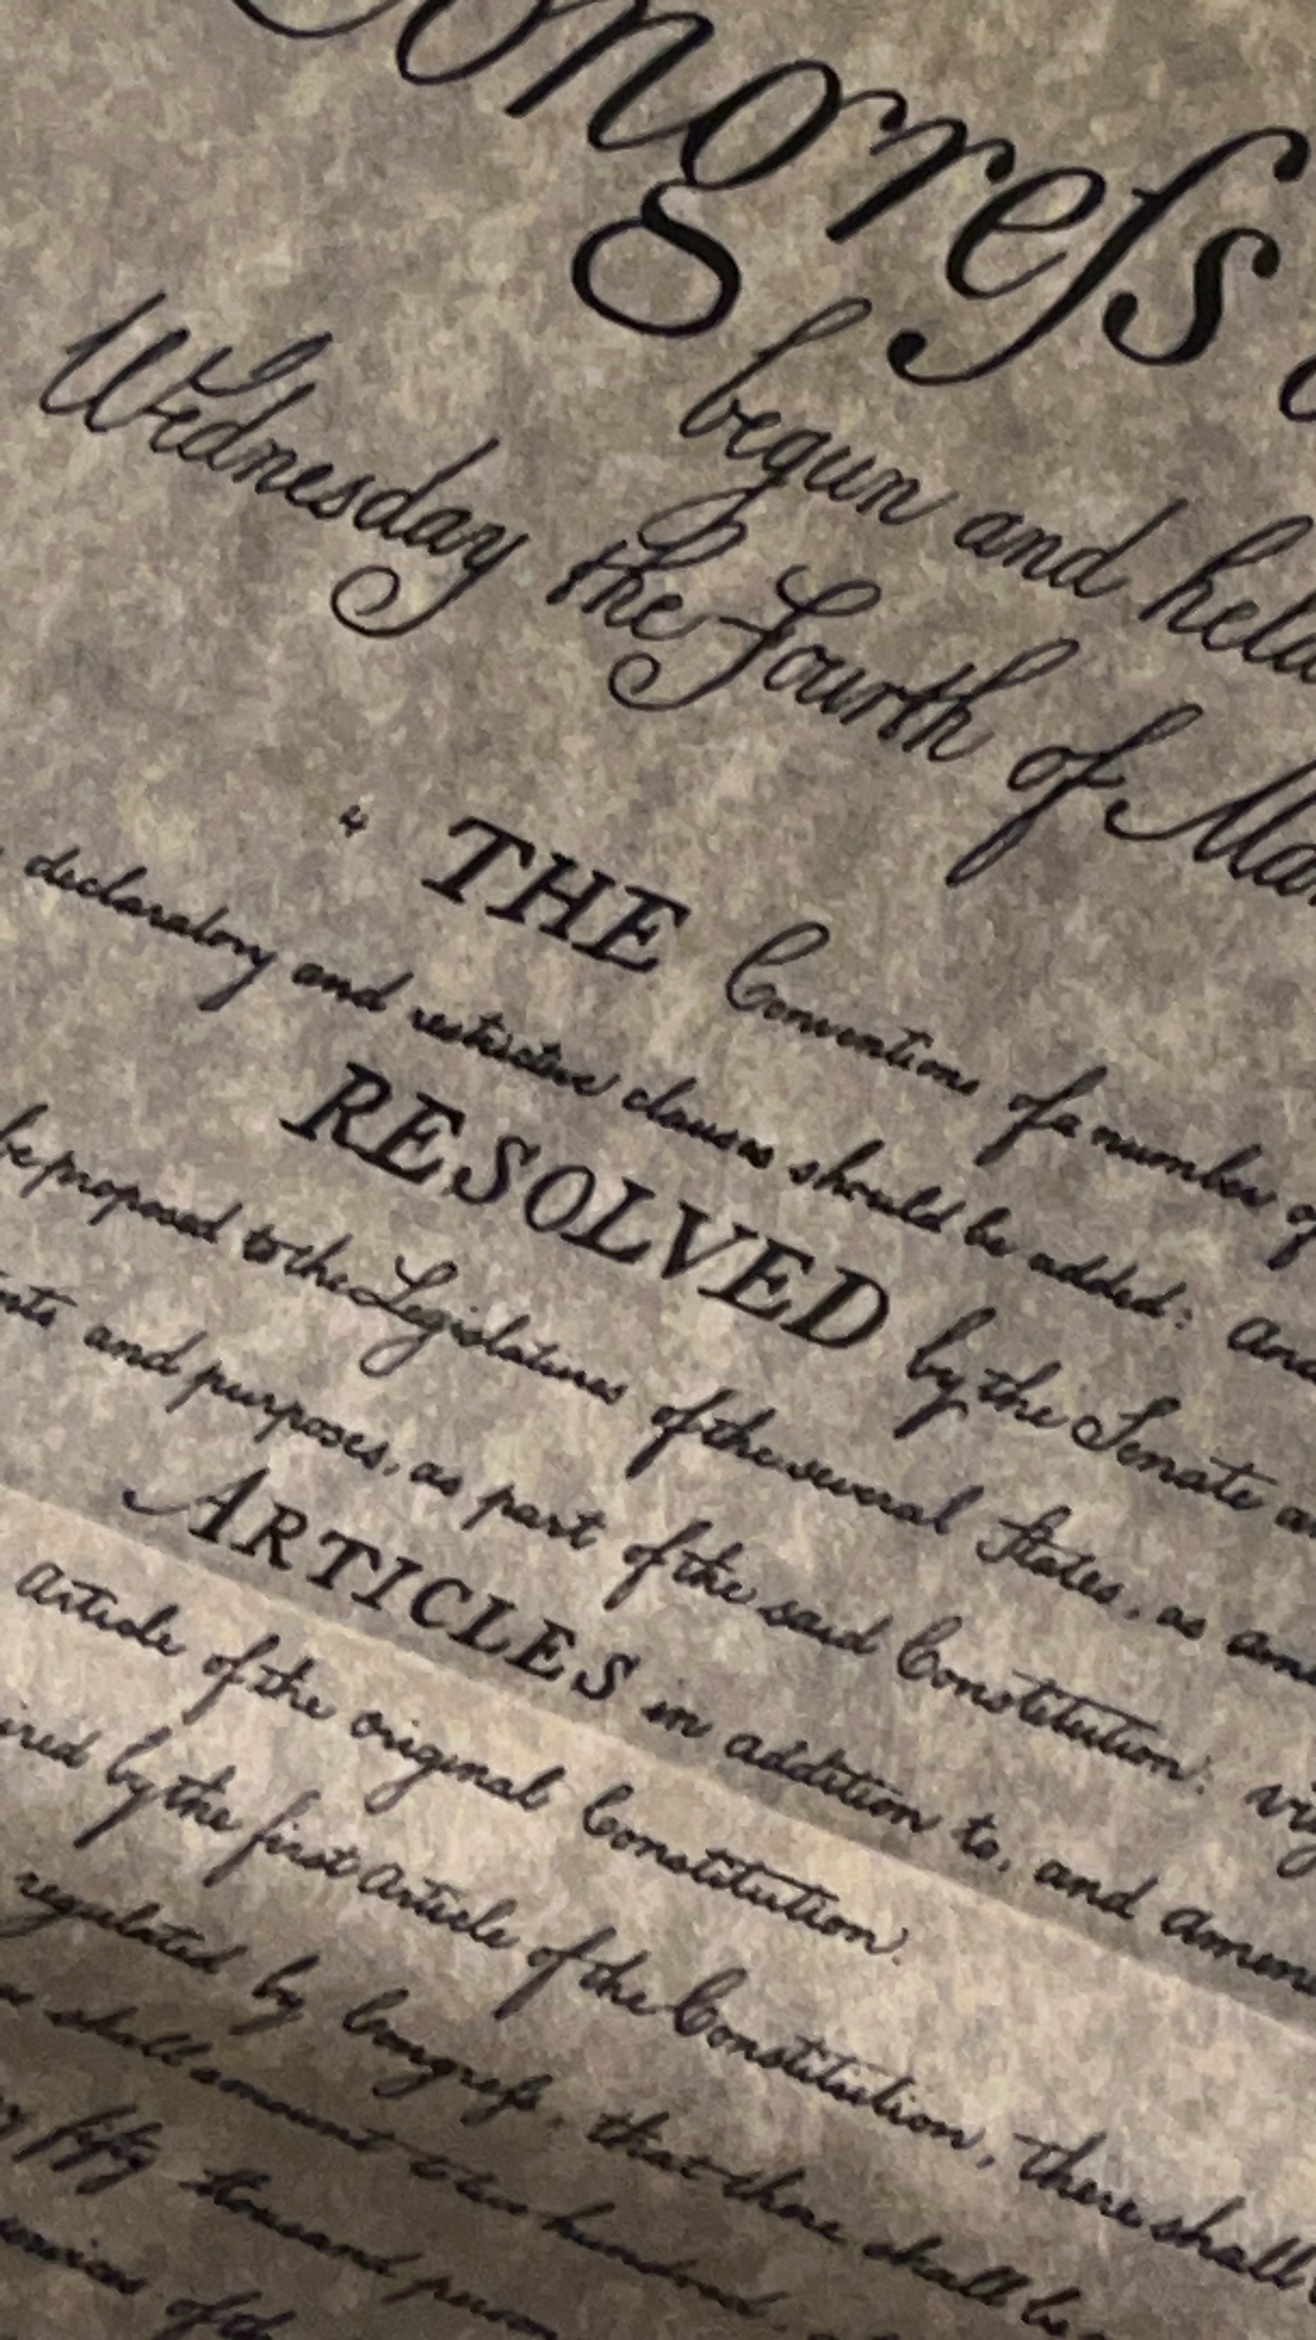 Congreſs
begun and held
Wednesday the Fourth of Ma
THE Conventions of a number of
declaratory and restrictive clauses should be added: And
RESOLVED by the Senate a
be proposed to the Legislatures of the several States, as am
nts and purposes, as part of the said Constitution: viz
ARTICLES in addition to, and Amen
Article of the original Constitution.
ired by the first Article of the Constitution, there shall
regulated by Congreſs, that there shall be
shall amount to two hundred,
fifty thousand person
of the